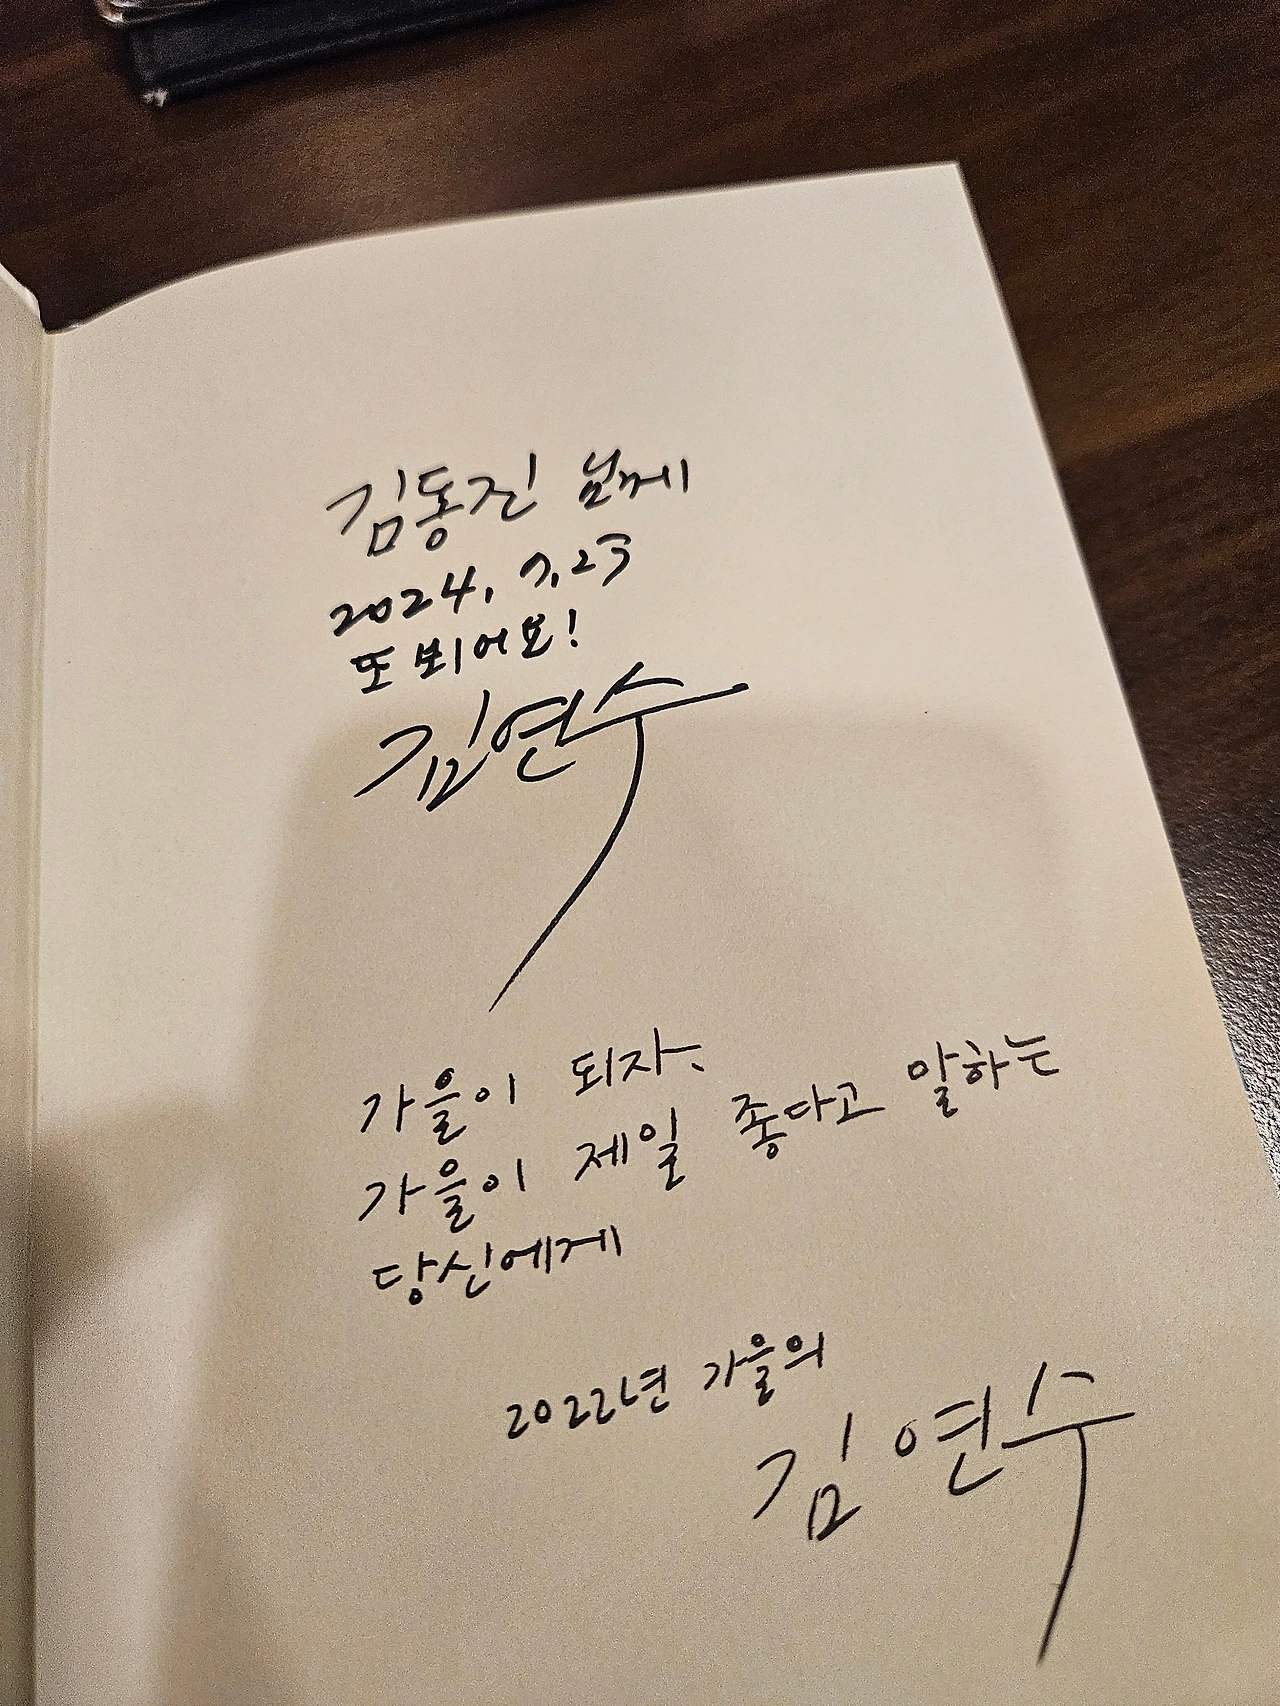 김동진 님께
2024. 7. 23
또 뵈어요!
김연수
가을이 되자,
가을이 제일 좋다고 말하는
당신에게
2022년 가을의
김연수